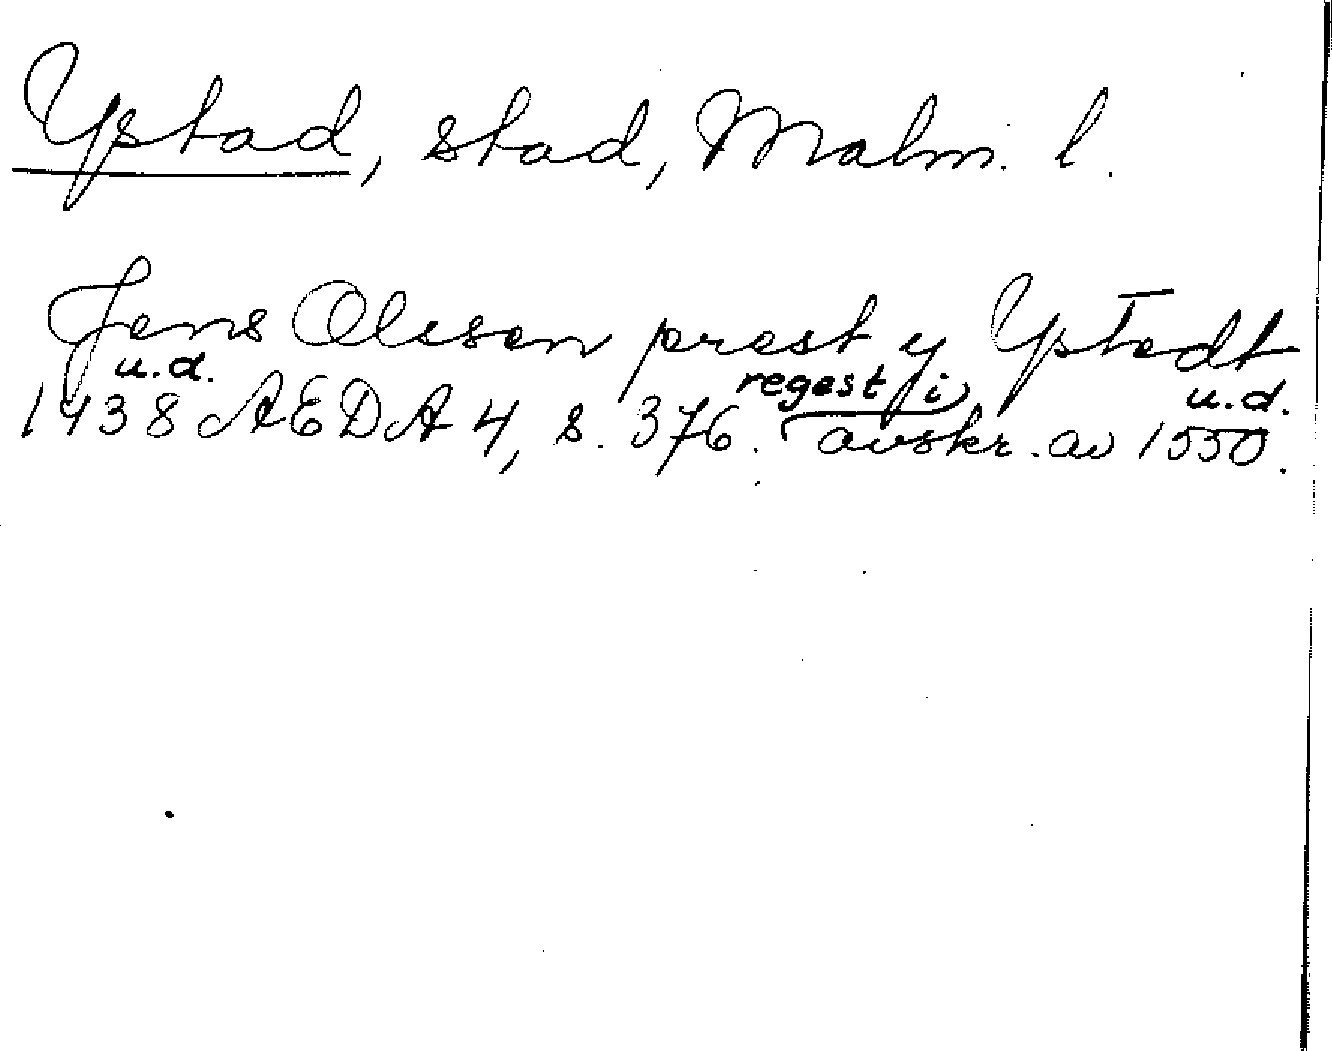 Ystad, stad, Malm. l.
Jens Olessen prest y Ystedt
u.d. regest i u.d.
1438 AEDA 4, s. 376. avskr. av 1550.